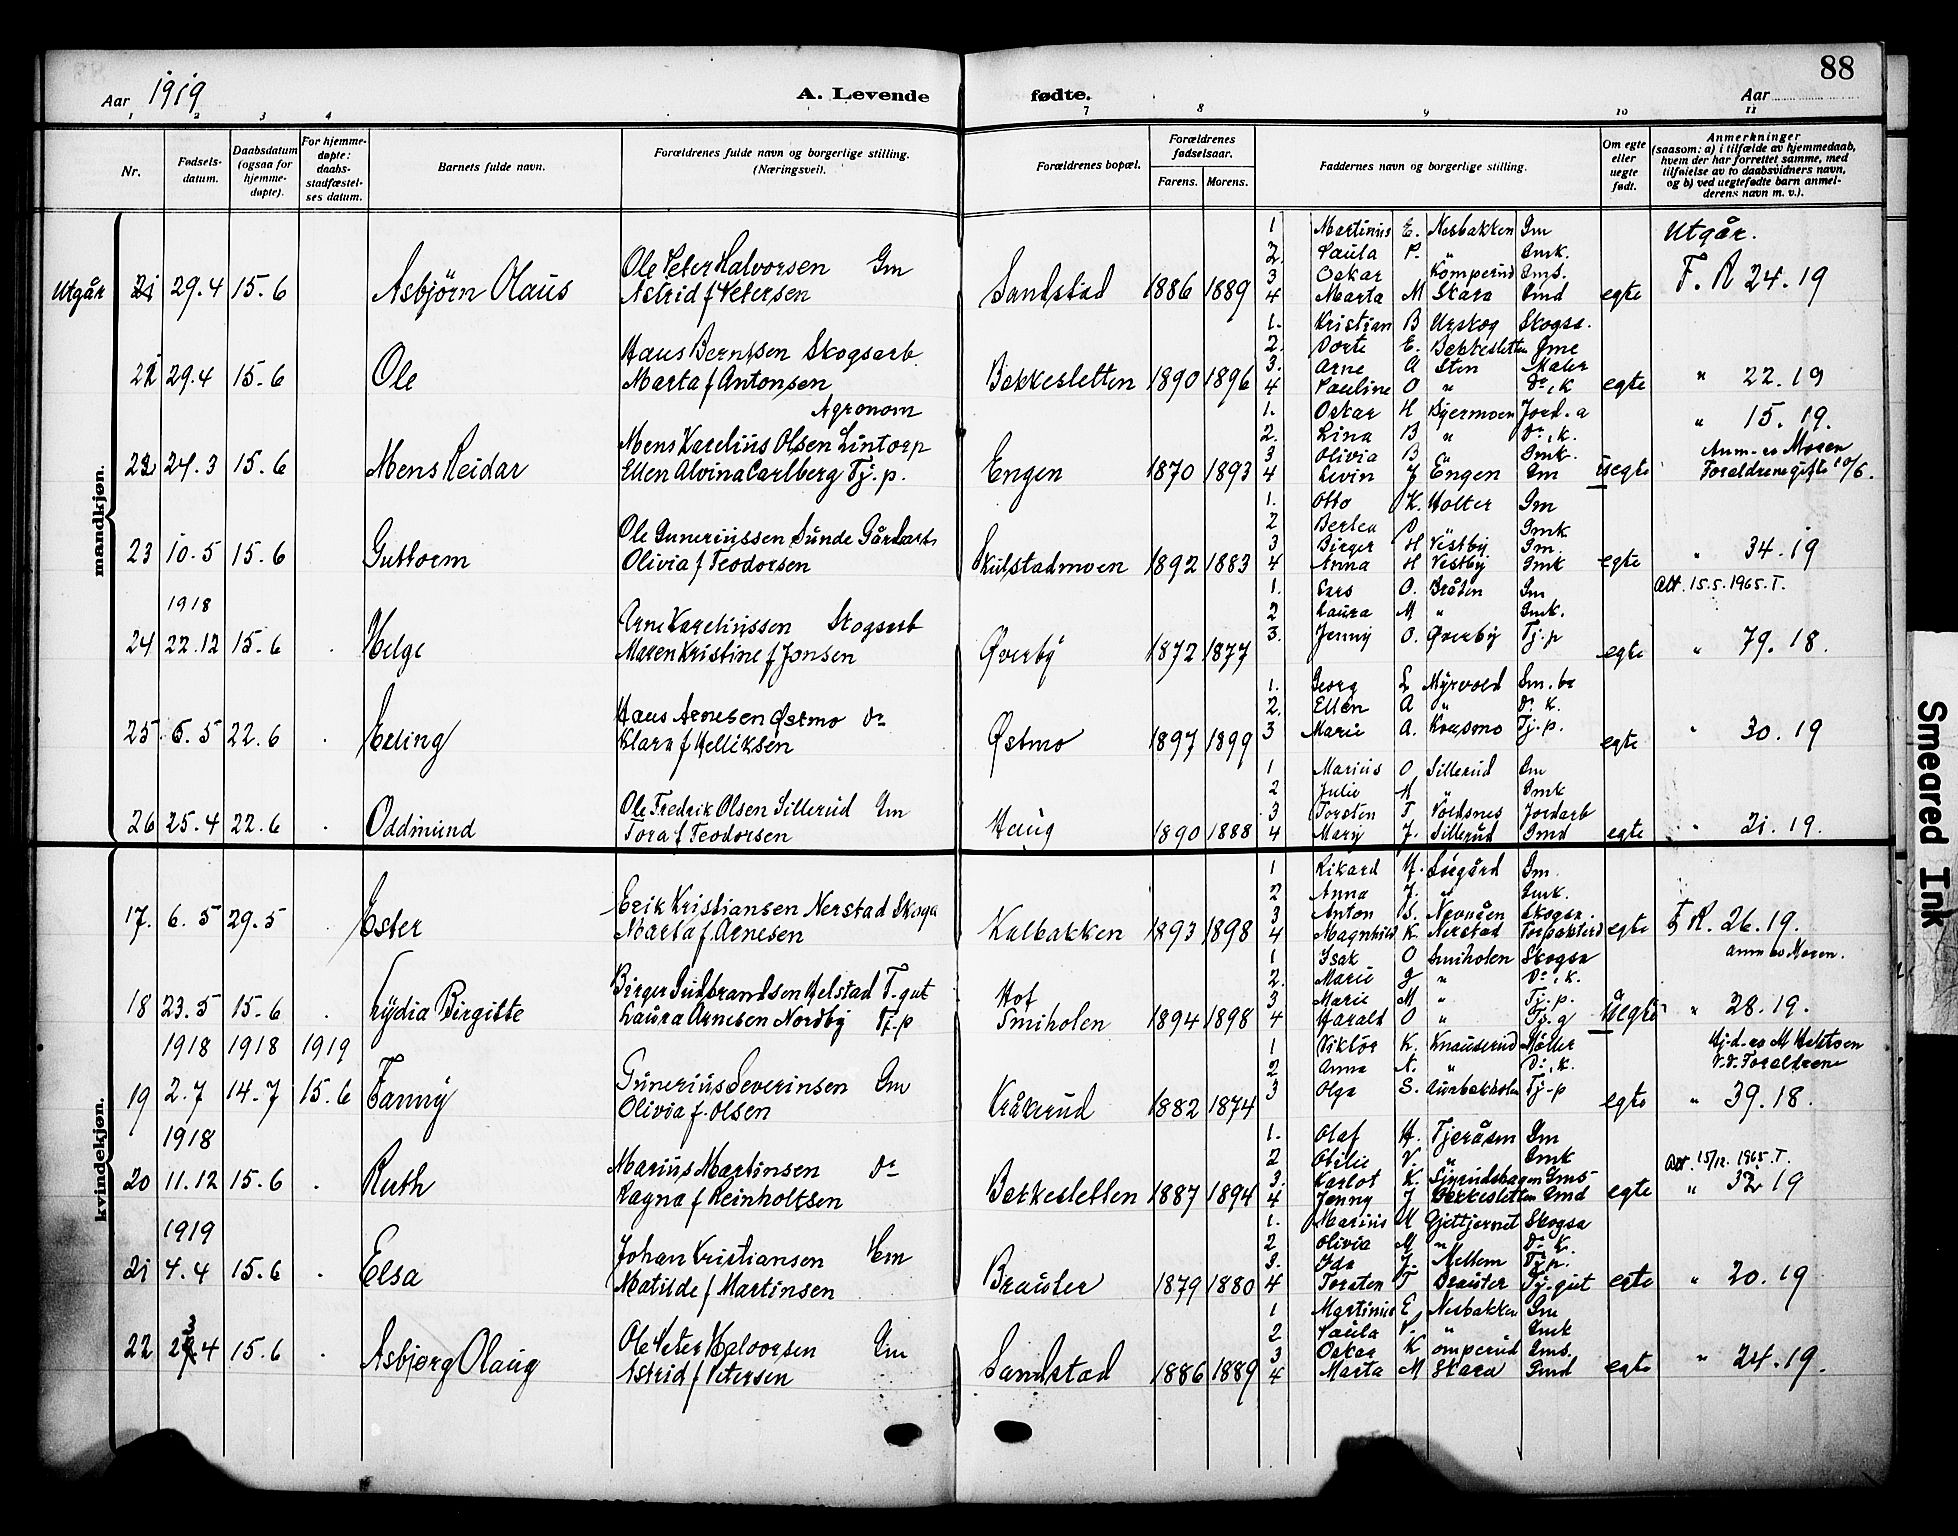 88
Aar 1919 A. Levende fødte. Aar
1 2 3 4 7 8 9 10 11
Nr. Fødsels-datum. Daabsdatum (ogsaa for hjemme-døpte). For hjemme-døpte: daabs-stadfæstel-ses datum. Barnets fulde navn. Forældrenes fulde navn og borgerlige stilling. (Næringsvei). Forældrenes bopæl. Forældrenes fødselsaar. Farens. Morens. Faddernes navn og borgerlige stilling. Om egte eller uegte født. Anmerkninger (saasom: a) i tilfælde av hjemmedaab, hvem der har forrettet samme, med tilføielse av to daabsvidners navn, og b) ved uegtefødte barn anmel-derens navn m. v.).
mandkjøn.
1 Martinus E. Nesbakken Gm Utgår.
2. Paula P. " Gmk.
Ole Peter Halvorsen Gm 3 Oskar Komperud Gms.
Utgår 21 29.4 15.6 Asbjörn Olaus Astrid f Petersen Sandstad 1886 1889 4 Marta M Skara Gmd egte F. R 24.19
1. Kristian B Urskog Skogsa.
Hans Berntsen Skogsarb 2. Dorte E. Bekkesletten Gme
3. Arne A Sten Maler
22 29.4 15.6 Ole Marta f Antonsen Bekkesletten 1890 1896 4 Pauline O " Do, k egte " 22.19
Agronom 1. Oskar H Bjermoen Jord.a " 15.19.
Mens Karelius Olsen Lintorp 2. Lina B " Do, k. Anm. av Moren
3 Olivia B " Gmk.
22 24.3 15.6 Mens Reidar Ellen Alvina Carlberg Tj.p. Engen 1870 1893 4 Levin J Engen Gm uegte Foraldrene gifte 10/6.
1. Otto K. Holter Gm
Ole Gunerinssen Sunde Gårdarb. 2 Gmk
3 Birger H Vestby Gm
23 10.5 15.6 Guttorm Olivia f Teodorsen Skulstadmoen 1892 1883 4 Anna H Vestby Gmk egte " 34.19
1918 1. Lars O. Bråten Gm Att. 15.5.1965. T.
Arne Karelinssen Skogsarb 2 Laura M " Gmk.
24 22.12 15.6 Helge Maren Kristine f Jonsen Øverby 1872 1877 3. Jenny O. Øverby Tj.p egte " 79.18.
1. Georg L Myrvold Gm.br
Hans Arnesen Østmo Do 2. Ellen A " Do. K.
25 6.5 22.6 Erling Klara f Helliksen Østmo 1897 1899 3 Marie A. Korsmo Tj.p. egte " 30.19
1 Marius O Sillerud Gm
2 Julie M " Gmk
Ole Fredrik Olsen Sillerud Gm 3 Torsten T Voldsnes Jordarb
26 25.4 22.6 Oddmund Tora f Teodorsen Haug 1890 1888 4 Mary J. Sillerud Gmd egte " 21.19.
kvindekjøn.
1 Rikard H. Sörgård Gm.
2 Anna J. " Gmk.
Erik Kristiansen Nerstad Skoga 3 Anton S. Skogsa.
17. 6.5 29.5 Ester Marta f Arnesen Kalbakken 1893 1898 4 Magnhild K. Nerstad egte F R. 26.19.
1 Isak O Smiholen Skogsa anm av Moren.
Birger Gudbrandsen Helstad T.gut Hof 2. Marie g " Do, k.
3 Marie M " Tj.p.
18 23.5 15.6 Lydia Birgitte Laura Arnesen Nordby Tj.p Smiholen 1894 1898 4 Harald O " Tj.g uegte " 28.19.
1918 1918 1919 1 Viktor K. Knauserud Möller Hj.d. av M Mellson
2 Anna N. " Do, k. v.d. Foraldrene
Gunerius Severinsen Gm
19 2.7 14.7 15.6 Fanny Olivia f. Olsen Kråkrud 1882 1874 3 Olga S. Aurbekkholen Tj.p egte " 39.18.
1918 1. Olaf H. Tjeråsen Gm
Marius Martinsen Do 2 Otilie V. " Gmk Att. 15/12. 1965. T.
3. Karlot K. Gms
20 11.12 15.6 Ruth Ragna f Reinholtsen Bekkesletten 1887 1894 4 Jenny J Bekkesletten Gmd egte " 32.19
1919 1. Marius M Gjettjernet Skogsa
2 Olivia M " Do. K.
Johan Kristiansen Hm 3. Ida J. Mellem Tj.p.
21 4.4 15.6 Elsa Matilde f Martinsen Brauter 1879 1880 4 Torsten T Brauter Tj.gut egte " 20.19
1 Martinius E. Nesbakken Gm
2 Paula P. " Gmk
Ole Peter Halvorsen Gm 3 Oskar Komperud Gms.
22 23.4 15.6 Asbjørg Olaug Astrid f Petersen Sandstad 1886 1889 4 Marta M Skara Gmd egte " 24.19.
Smeared Ink